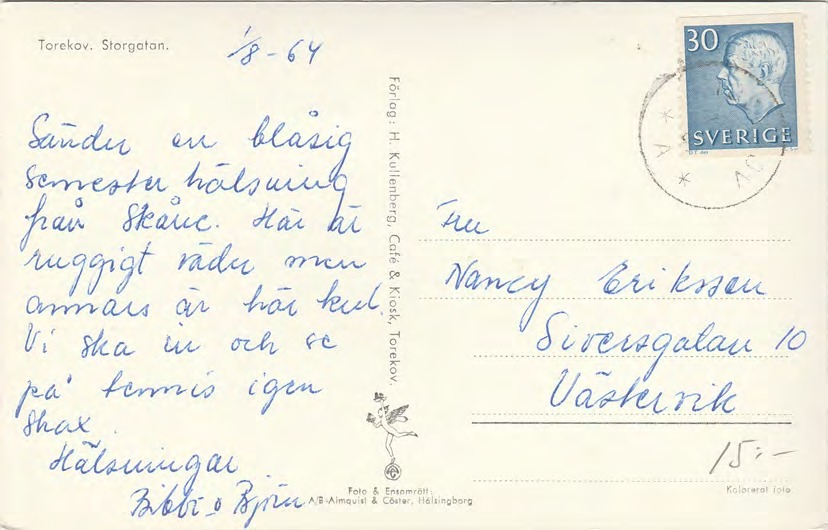 Torekov. Storgatan.
1/8 - 64
Sänder en blåsig
semester hälsning
från Skåne. Här är
ruggigt väder men
annars är här kul.
Vi ska in och se
på tennis igen
strax.
Hälsningar
Bibbi o Björn
Förlag: H. Kullenberg, Café & Kiosk, Torekov.
Foto & Ensamrätt:
A/B Almquist & Cöster, Hälsingborg
30
SVERIGE
* A *
Fru
Nancy Eriksson
Siversgatan 10
Västervik
15:-
Kolorerat foto